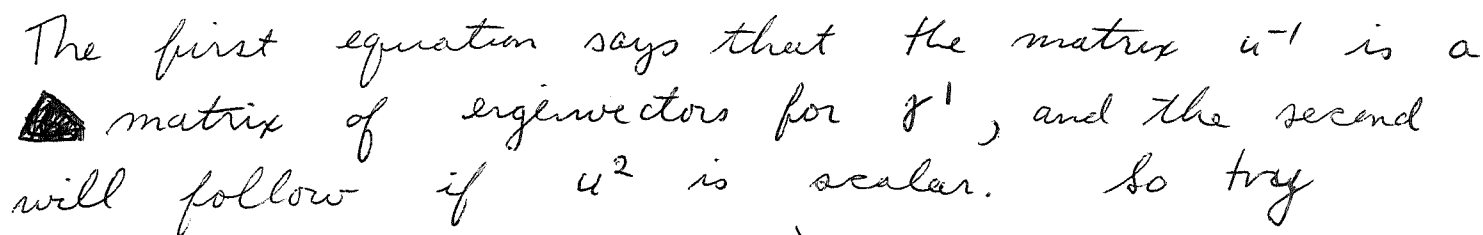 The first equation says that the matrix u⁻¹ is a
matrix of eigenvectors for γ¹, and the second
will follow if u² is scalar. So try